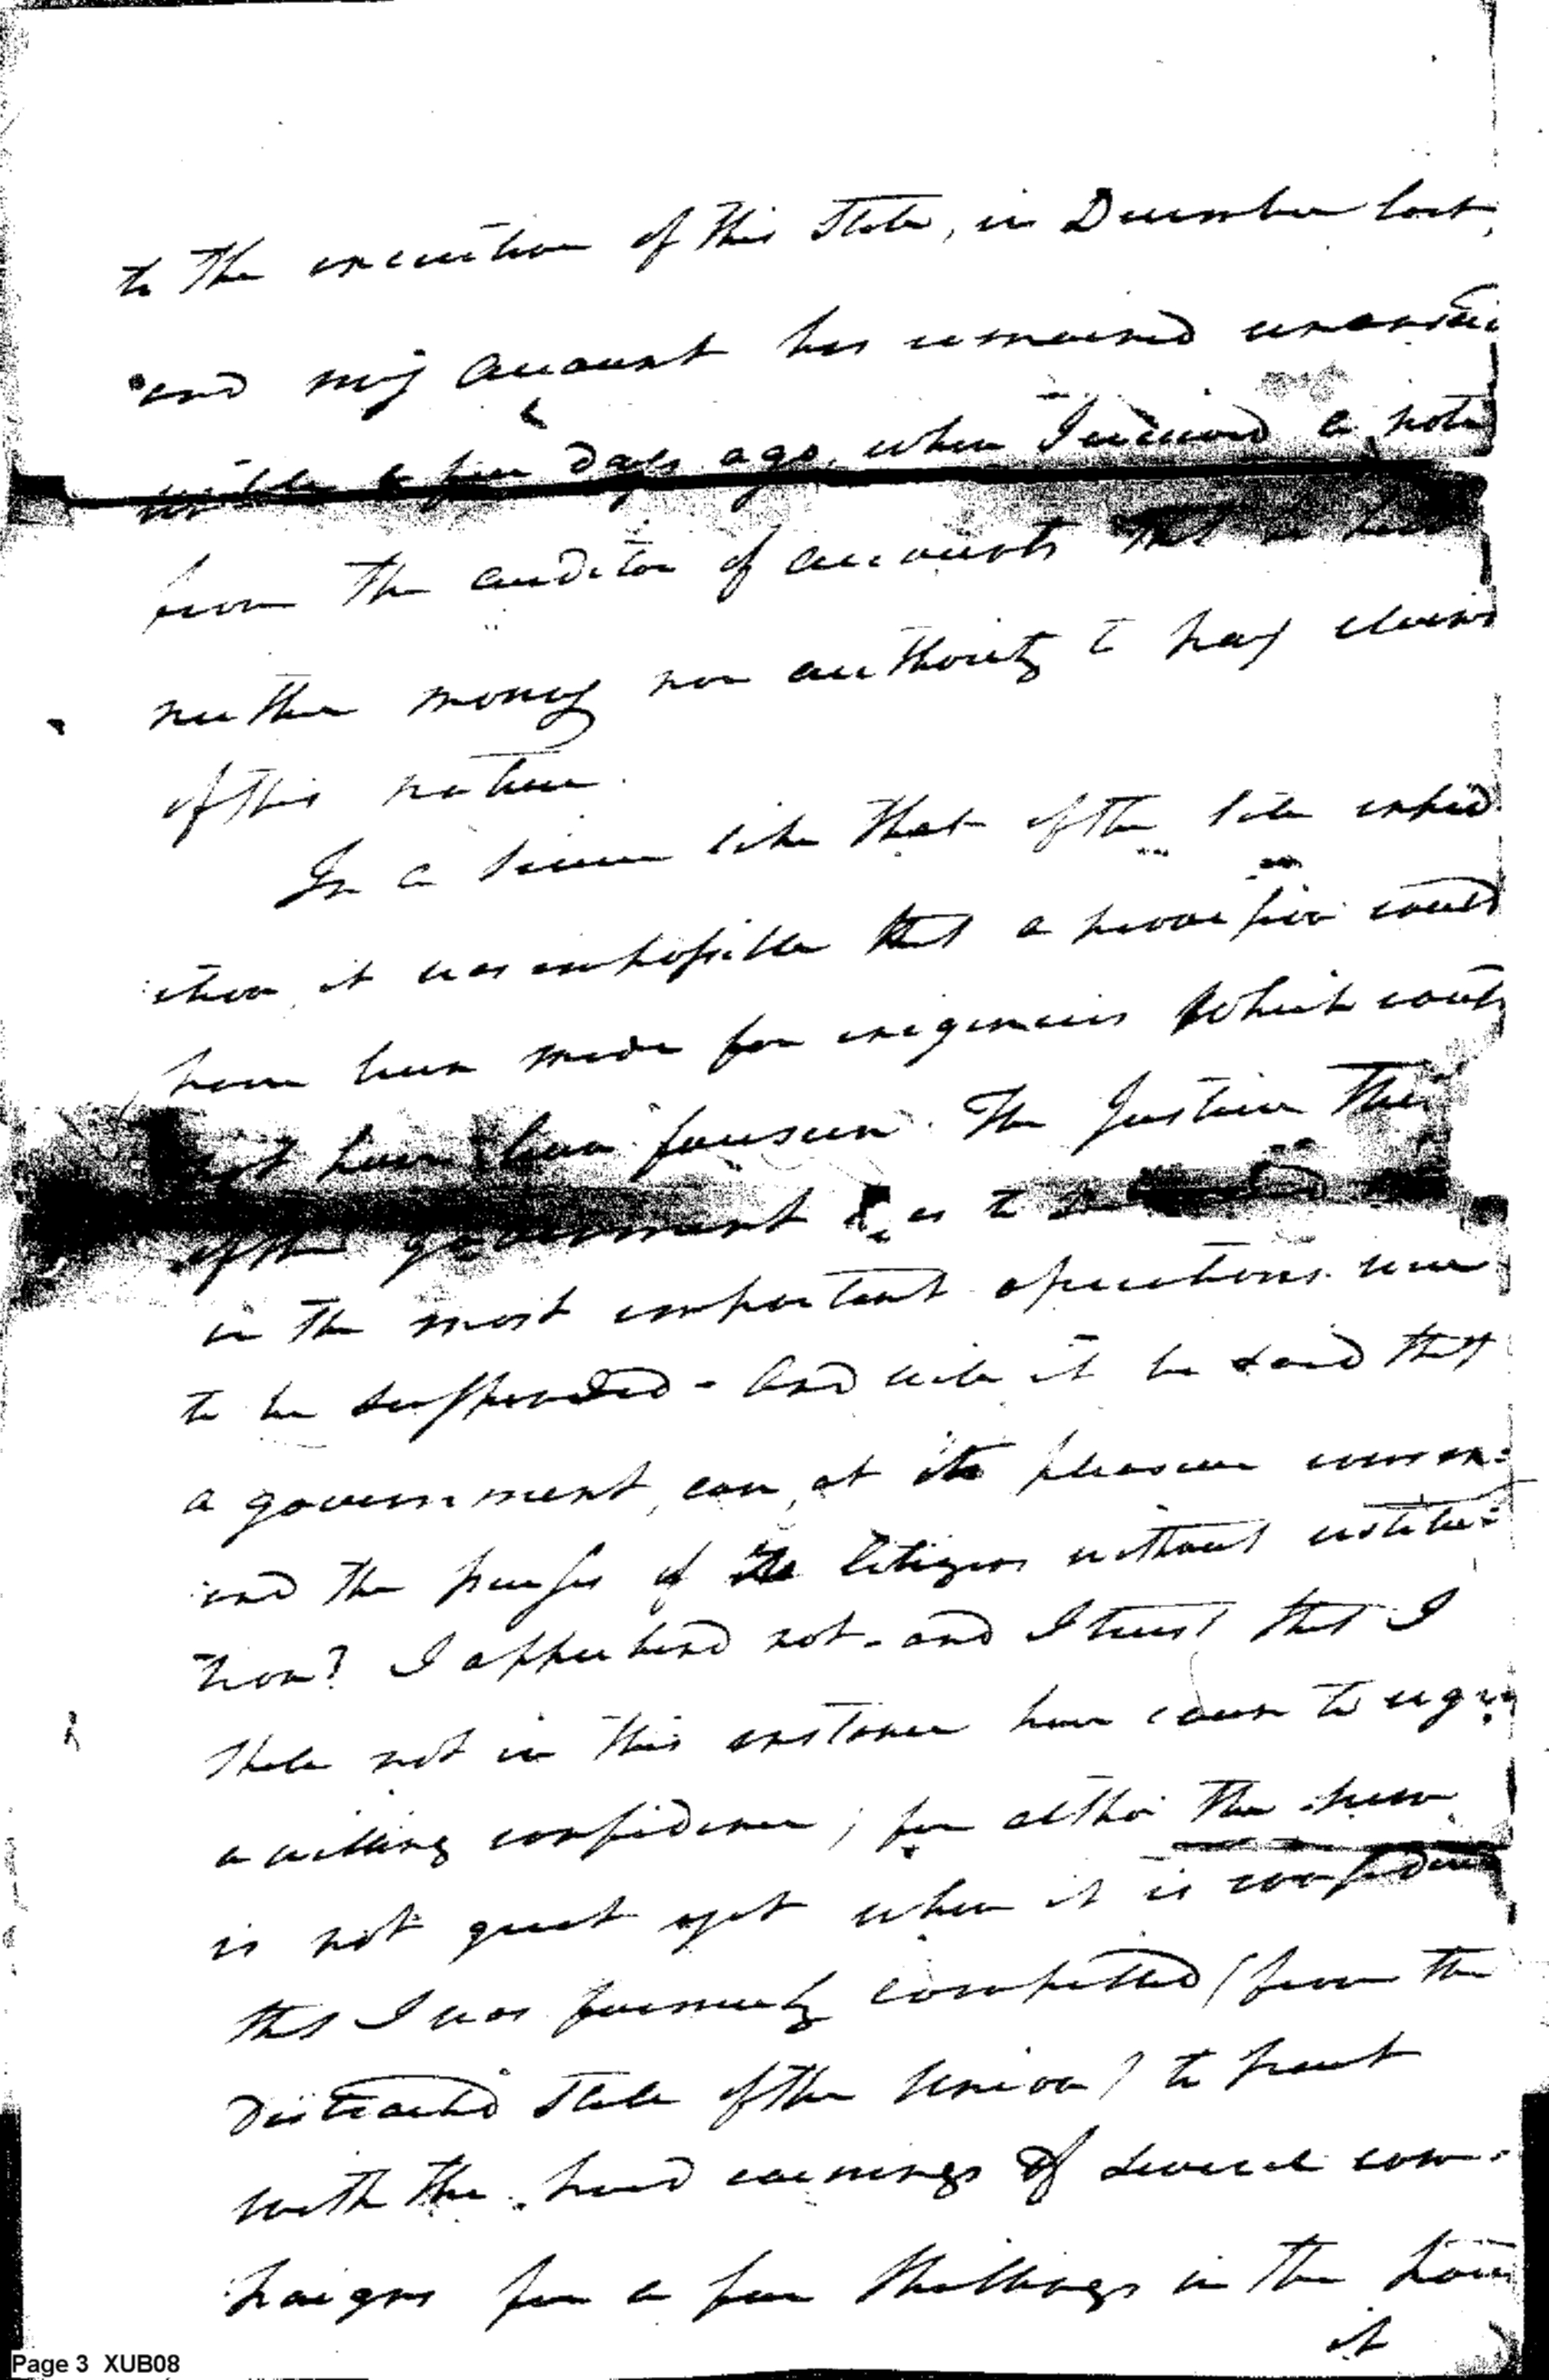 to the execution of this State, in December last,
and my account has remained unansw
untill a few days ago, when I received a note
from the auditor of accounts that he has
neither money nor authority to pay claims
of this nature.
In a scene like that of the late exped:
:ition, it was impossible that a provision could
have been made for exigencies which could
not have been foreseen. The Justice then
of the government is as to
in the most important operations were
to be suspended - And will it be said that
a government, can, at its pleasure comm:
:and the purses of its Citizens without restitu:
:tion? I apprehend not - and I trust that I
shall not in this instance have cause to regret
a willing confidence; for altho' the sum
is not great yet when it is considered
that I was formerly compelled (from the
distracted state of the Union) to part
with the hard earnings of several cam:
:paigns for a few shillings in the pound
it
Page 3 XUB08